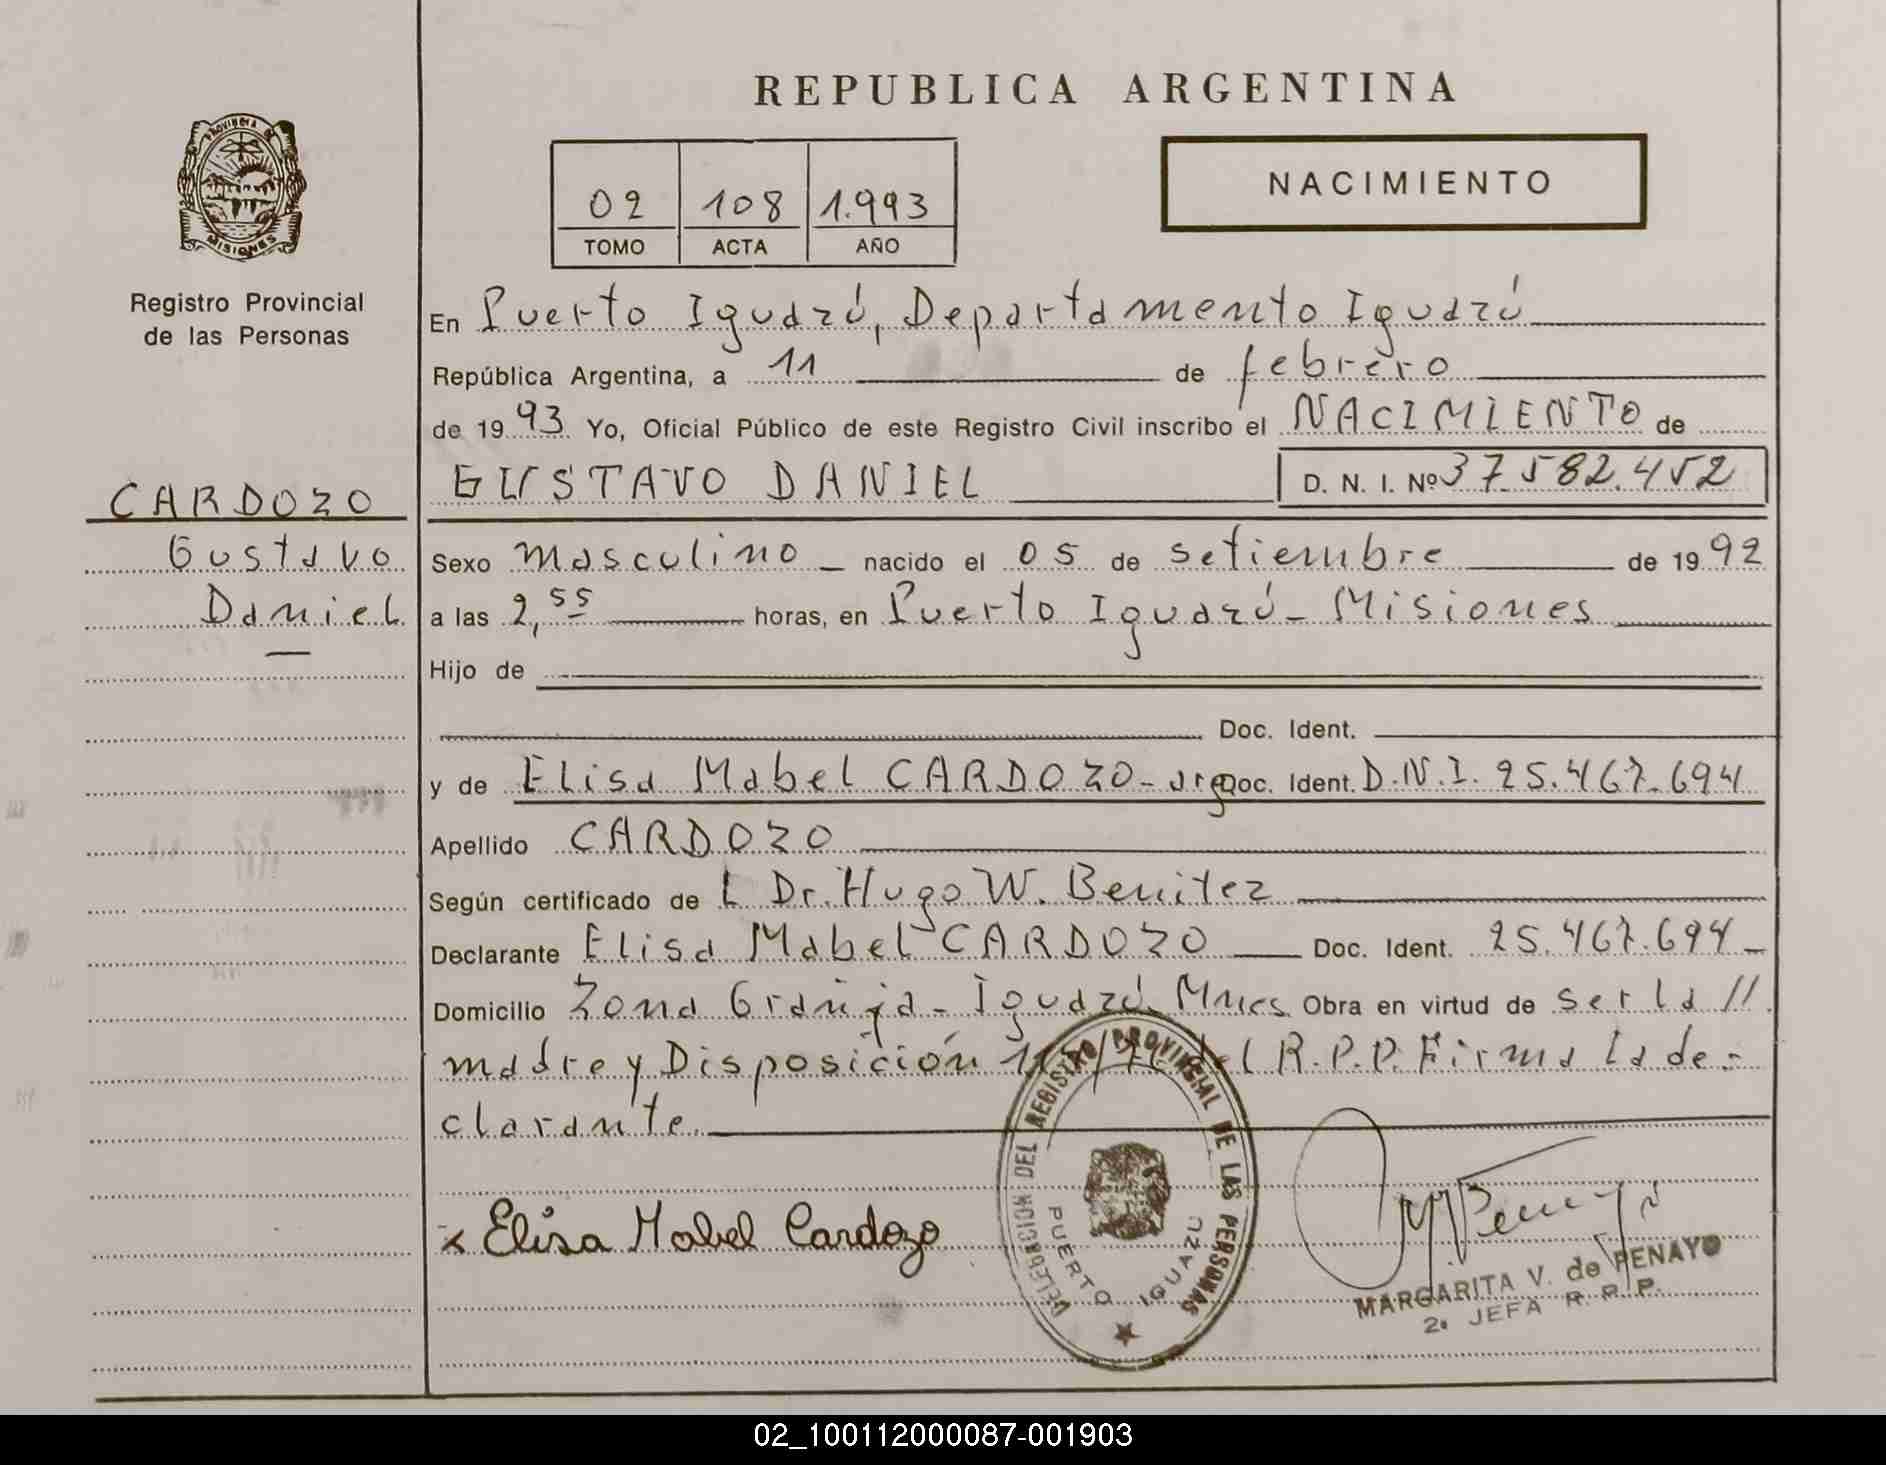 REPUBLICA ARGENTINA
PROVINCIA DE
MISIONES
Registro Provincial
de las Personas
02 108 1.993
TOMO ACTA AÑO
NACIMIENTO
En Puerto Iguazú, Departamento Iguazú
República Argentina, a 11 de febrero
de 1993 Yo, Oficial Público de este Registro Civil inscribo el NACIMIENTO de
GUSTAVO DANIEL D. N. I. Nº 37.582.452
CARDOZO
Gustavo
Daniel
Sexo masculino nacido el 05 de setiembre de 1992
a las 2,55 horas, en Puerto Iguazú - Misiones
Hijo de
Doc. Ident.
y de Elisa Mabel CARDOZO - arg Doc. Ident. D.N.I. 25.467.694
Apellido CARDOZO
Según certificado de L Dr. Hugo W. Benitez
Declarante Elisa Mabel CARDOZO Doc. Ident. 25.467.694 -
Domicilio Zona Granja - Iguazú Mnes Obra en virtud de ser la //
madre y Disposición del R.P.P. Firma la de-
clarante.
x Elisa Mabel Cardozo
DELEGACION DEL REGISTRO PROVINCIAL DE LAS PERSONAS
PUERTO IGUAZU
MARGARITA V. de PENAYO
2ª JEFA R. P. P.
02_100112000087-001903